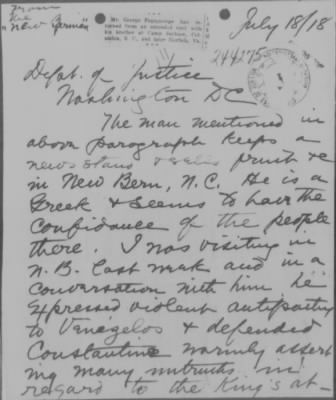 From
the
"New Bernian"
July 18/18
Mr. George
turned from an extended visit with
his brother at Camp Jackson, Columbia, S. C.
244275
Dept. of Justice
Washington DC
The man mentioned in
above paragraph keeps a
news stand & sells fruit &c
in New Bern, N.C. He is a
Greek & seems to have the
confidance of the people
there. I was visiting in
N.B. last week and in a
conversation with him he
expressed violent antipathy
to Venezelos & defended
Constantine warmly assert
ing many untruths in
regard to the King's at-